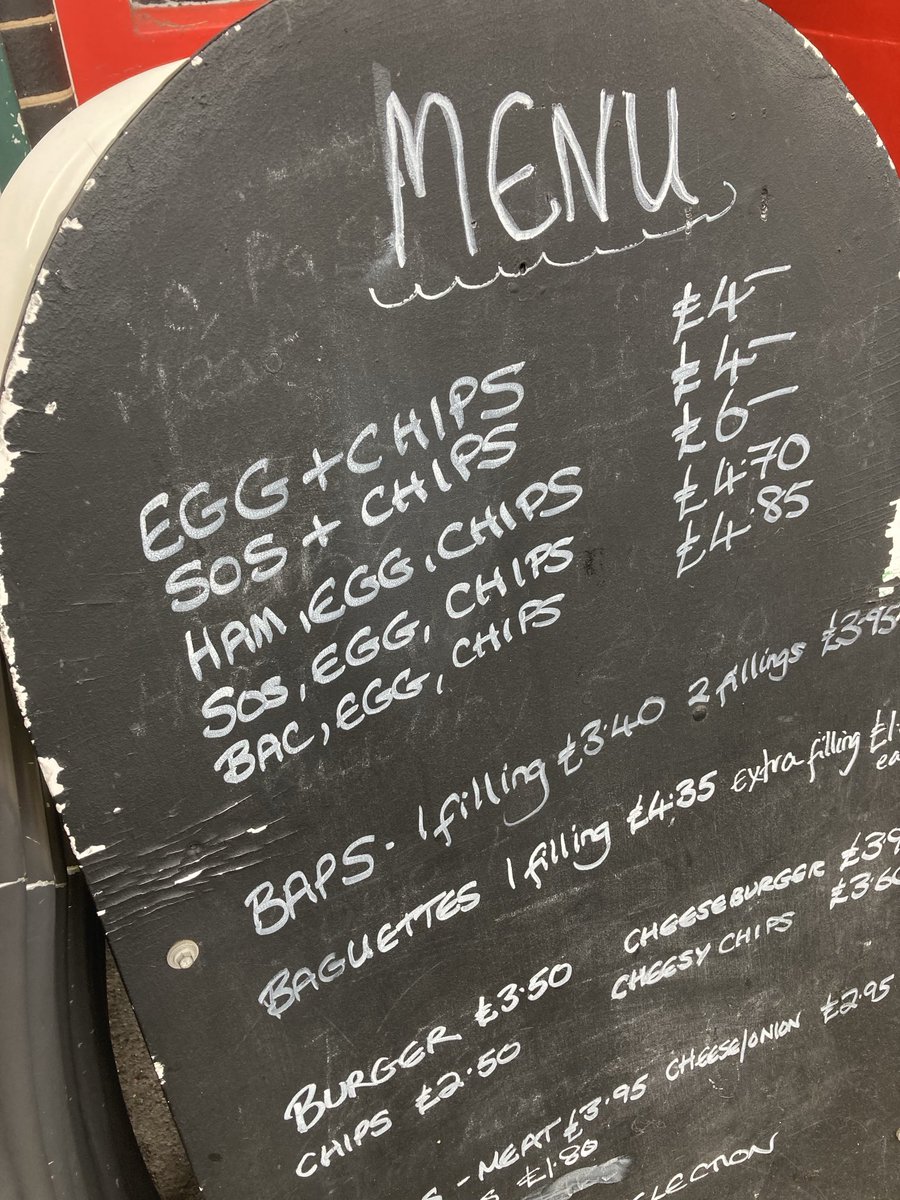 MENU
EGG + CHIPS £4-
SOS + CHIPS £4-
HAM, EGG, CHIPS £6-
SOS, EGG, CHIPS £4.70
BAC, EGG, CHIPS £4.85
BAPS - 1 filling £3.40 2 fillings £3.95
BAGUETTES 1 filling £4.35 extra filling
BURGER £3.50 CHEESEBURGER
CHIPS £2.50 CHEESY CHIPS £3.60
- MEAT £3.95 CHEESE/ONION £2.95
£1.80